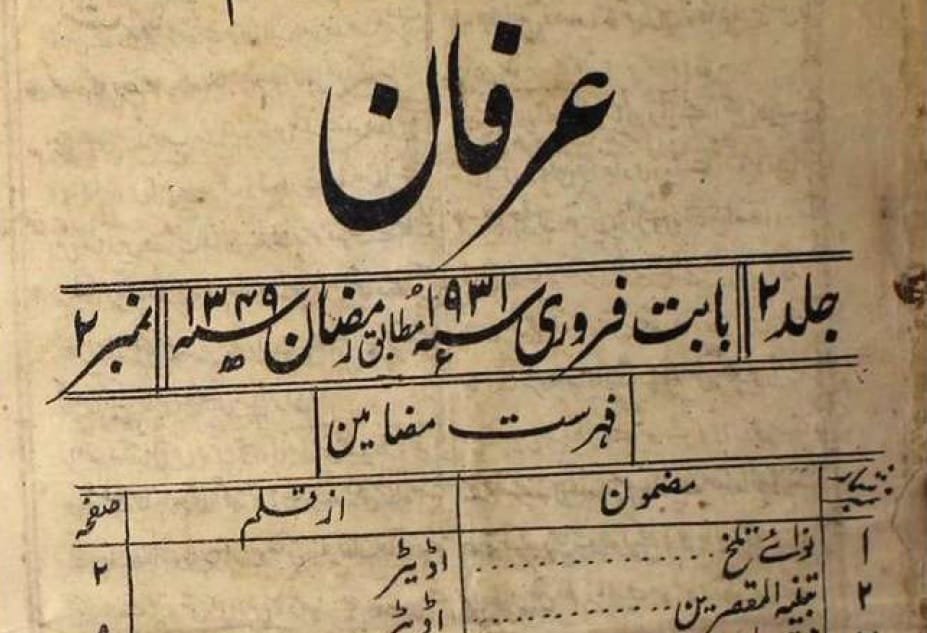 عرفان
جلد ۲ بابت فروری سنہ ۱۹۳۱ء مطابق رمضان سنہ ۱۳۴۹ھ نمبر ۲
فہرست مضامین
نمبر شمار مضمون از قلم صفحہ
۱ نوائے تلخ اڈیٹر ۲
۲ تنبیہ المقصرین اڈیٹر